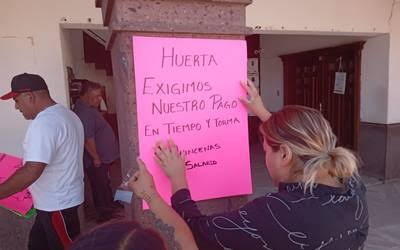 HUERTA
EXIGIMOS
NUESTRO PAGO
EN TIEMPO Y FORMA
QUINCENAS
SALARIO